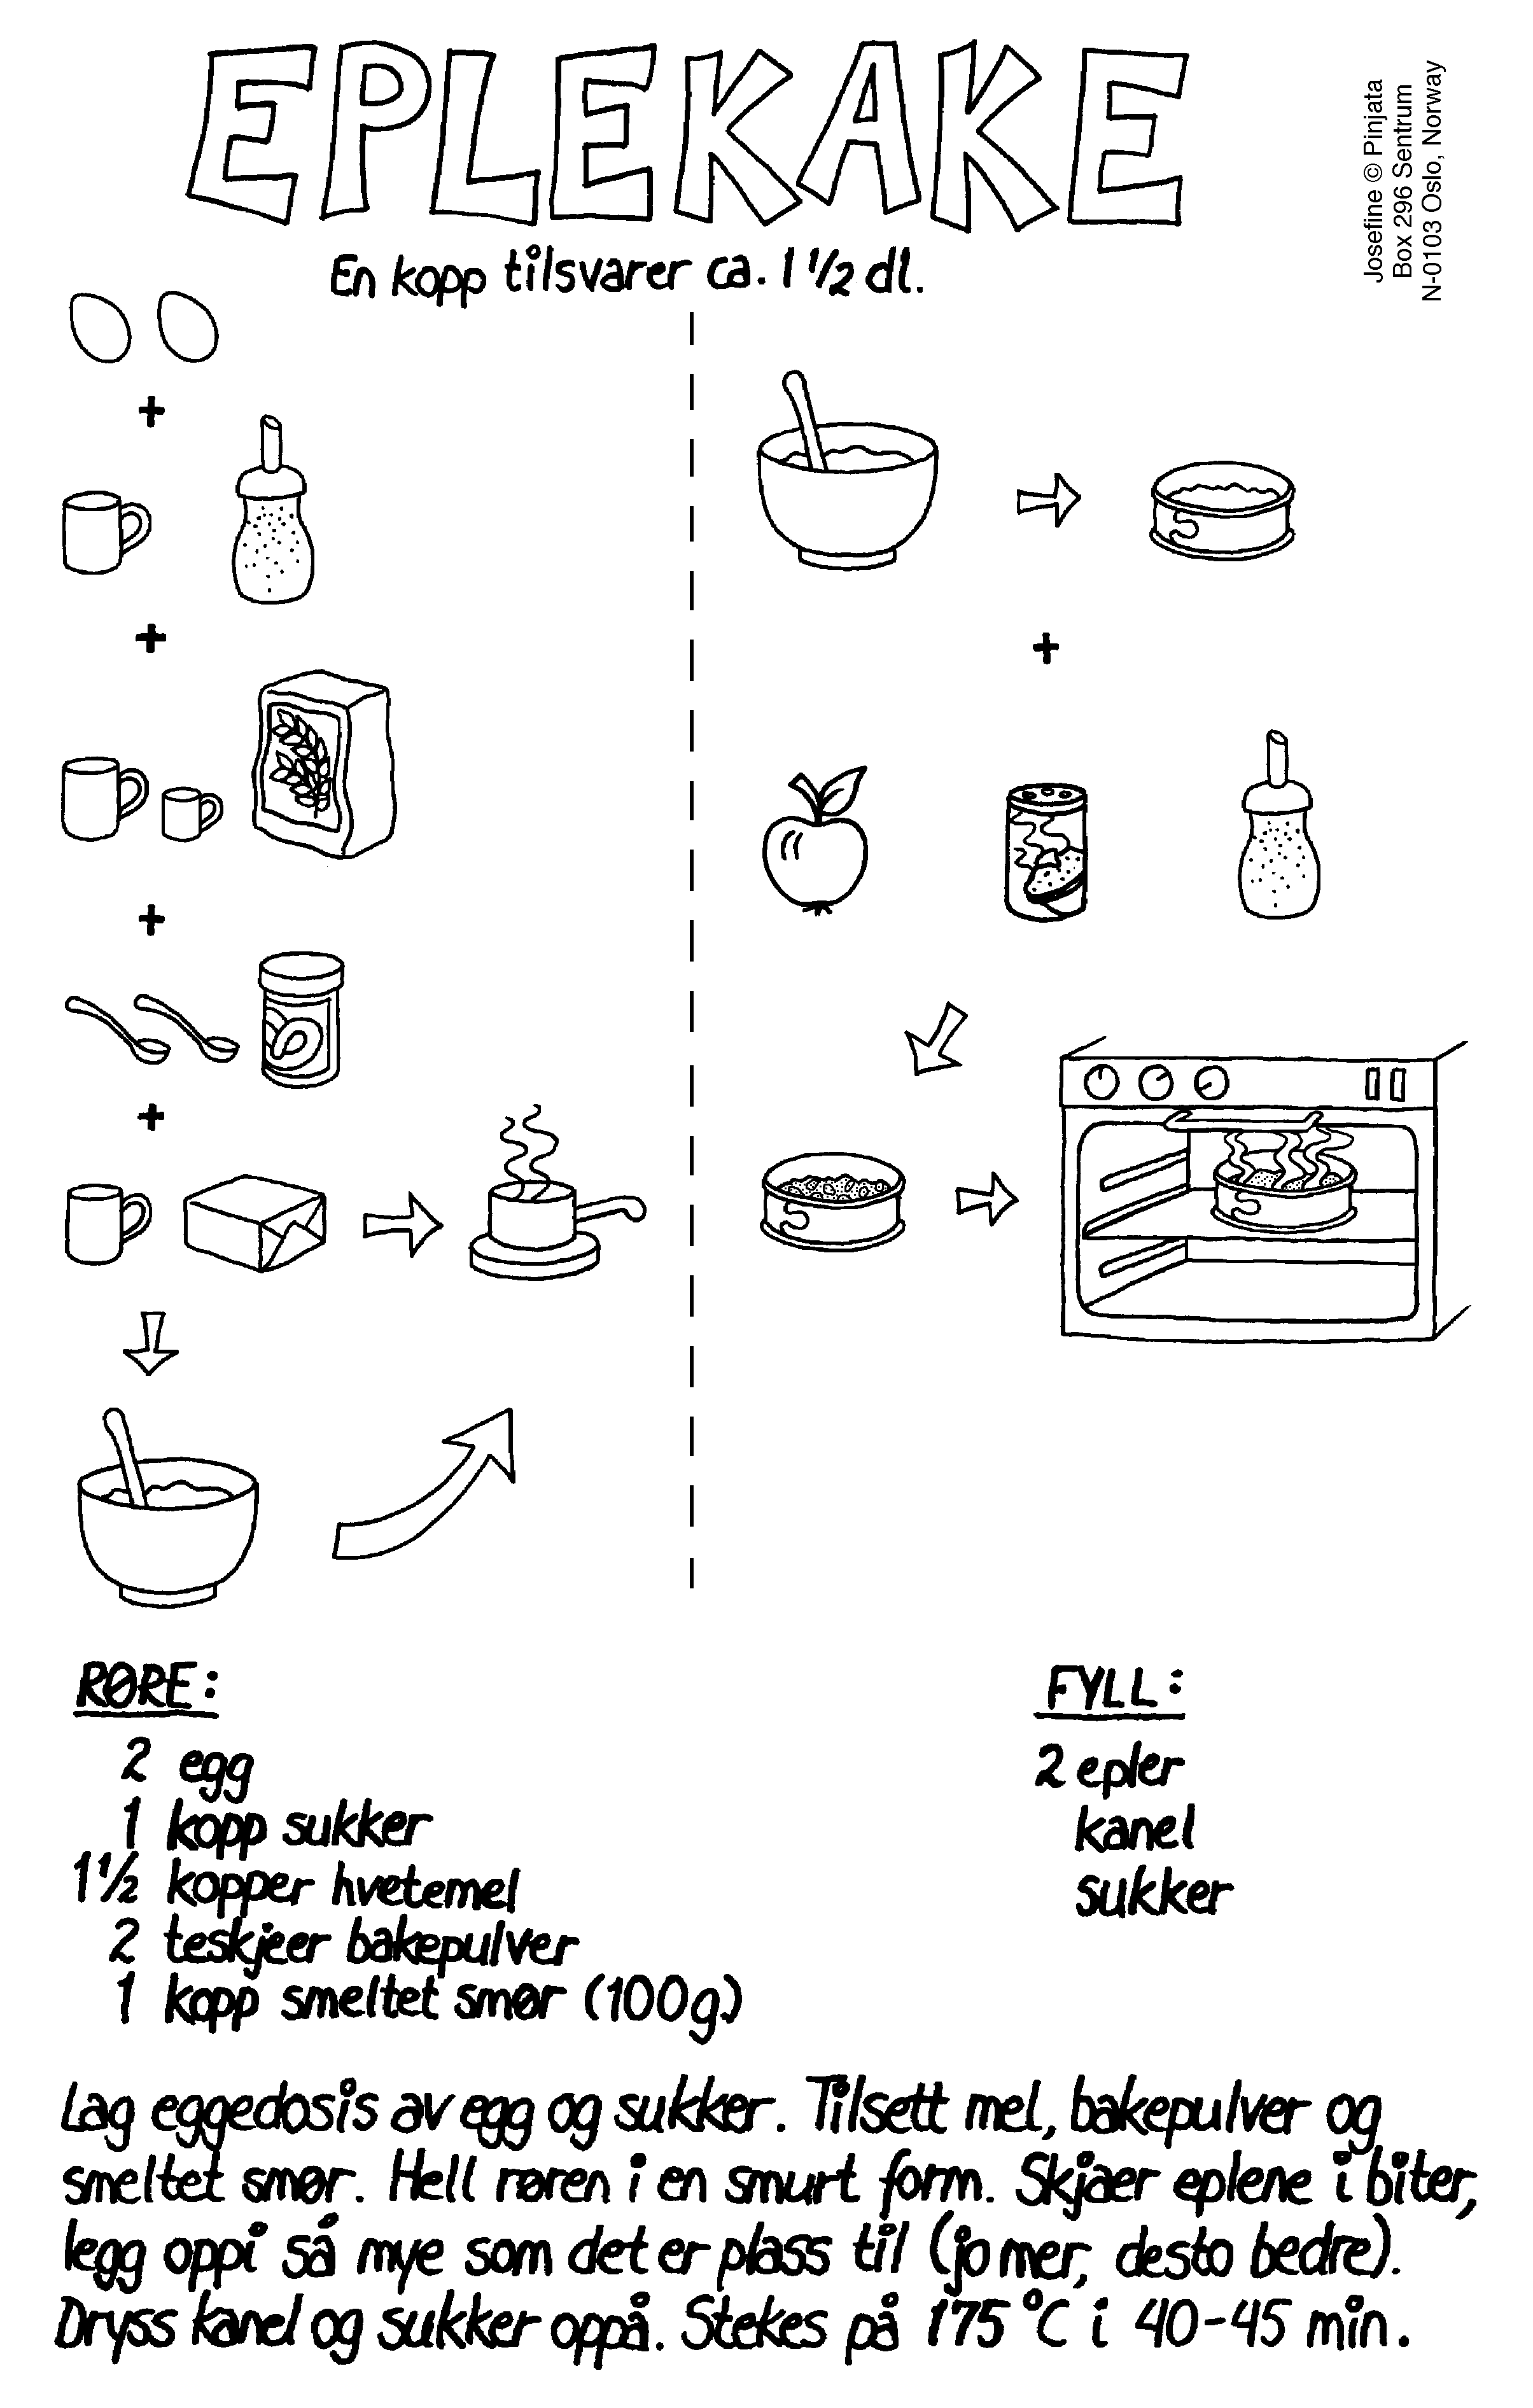 EPLEKAKE
Josefine © Pinjata
Box 296 Sentrum
N-0103 Oslo, Norway
En kopp tilsvarer ca. 1 1/2 dl.
RØRE:
2 egg
1 kopp sukker
1 1/2 kopper hvetemel
2 teskjeer bakepulver
1 kopp smeltet smør (100g)
FYLL:
2 epler
kanel
sukker
Lag eggedosis av egg og sukker. Tilsett mel, bakepulver og
smeltet smør. Hell røren i en smurt form. Skjær eplene i biter,
legg oppi så mye som det er plass til (jo mer, desto bedre).
Dryss kanel og sukker oppå. Stekes på 175 °C i 40-45 min.